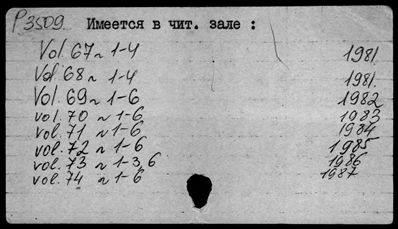 Р3509. Имеется в чит. зале :
Vol. 67 n 1-4 1981.
Vol. 68 n 1-4 1981.
Vol. 69 n 1-6 1982
vol. 70 n 1-6 1983
vol. 71 n 1-6 1984
vol. 72 n 1-6 1985
vol. 73 n 1-3, 6 1986
vol. 74 n 1-6 1987